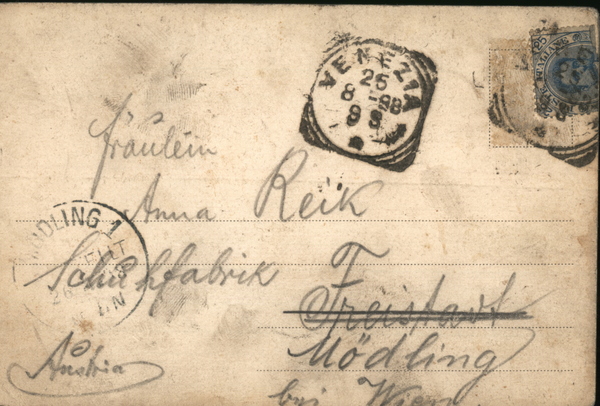 VENEZIA
26
8 -98
9 S
Fräulein
Anna Reik
MÖDLING 1
Schuhfabrik F.
Freistadt
Mödling
bei Wien
Austria